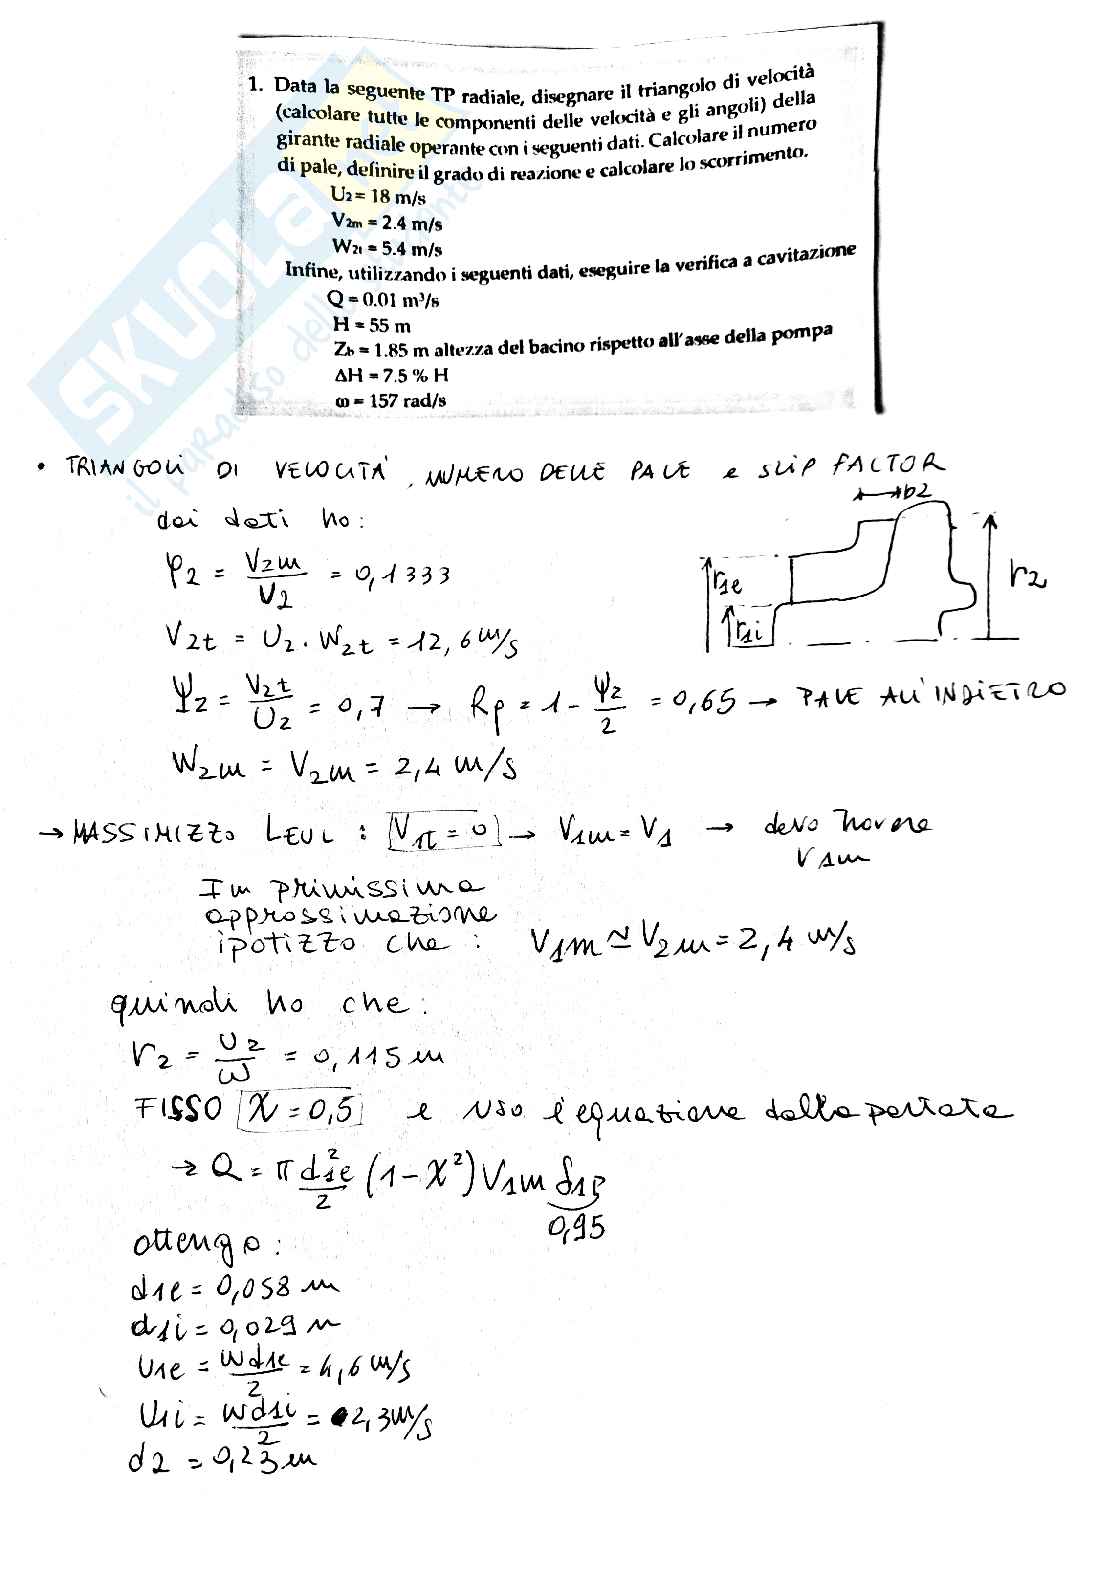 1. Data la seguente TP radiale, disegnare il triangolo di velocità
(calcolare tutte le componenti delle velocità e gli angoli) della
girante radiale operante con i seguenti dati. Calcolare il numero
di pale, definire il grado di reazione e calcolare lo scorrimento.
U2 = 18 m/s
V2m = 2.4 m/s
W2t = 5.4 m/s
Infine, utilizzando i seguenti dati, eseguire la verifica a cavitazione
Q = 0.01 m³/s
H = 55 m
Zb = 1.85 m altezza del bacino rispetto all'asse della pompa
ΔH = 7.5 % H
ω = 157 rad/s
SKUOLA
il paradiso dello
• TRIANGOLI DI VELOCITA', NUMERO DELLE PALE e SLIP FACTOR
b2
dai dati ho:
φ2 = V2m / U2 = 0,1333
r1e
r1i
r2
V2t = U2 . W2t = 12,6 m/s
Ψ2 = V2t / U2 = 0,7 → Rp = 1 - Ψ2 / 2 = 0,65 → PALE ALL'INDIETRO
W2m = V2m = 2,4 m/s
→ MASSIMIZZO LEUL : V1t = 0 → V1m = V1 → devo trovare
V1m
In primissima
approssimazione
ipotizzo che : V1m ≃ V2m = 2,4 m/s
quindi ho che :
r2 = U2 / ω = 0,115 m
FISSO χ = 0,5 e uso l'equazione della portata
→ Q = π d1e² / 2 (1 - χ²) V1m δ1p
0,95
ottengo :
d1e = 0,058 m
d1i = 0,029 m
U1e = ω d1e / 2 = 4,6 m/s
U1i = ω d1i / 2 = 2,3 m/s
d2 = 0,23 m